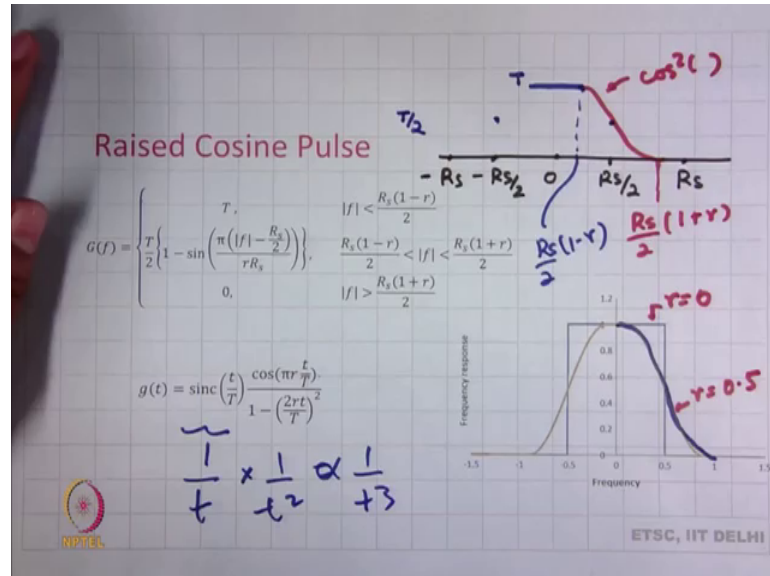 T
cos²( )
T/2
Raised Cosine Pulse
- Rs - Rs/2 0 Rs/2 Rs
Rs/2 (1-r) Rs/2 (1+r)
G(f) = { T, |f| < R_s(1-r)/2
T/2 {1 - sin(π(|f| - R_s/2)/rR_s)}, R_s(1-r)/2 < |f| < R_s(1+r)/2
0, |f| > R_s(1+r)/2
g(t) = sinc(t/T) cos(πr t/T)/1 - (2rt/T)²
1/t × 1/t² ∝ 1/t3
r=0
r=0.5
Frequency response
1.2
1
0.8
0.6
0.4
0.2
0
-1.5 -1 -0.5 0 0.5 1 1.5
Frequency
NPTEL
ETSC, IIT DELHI